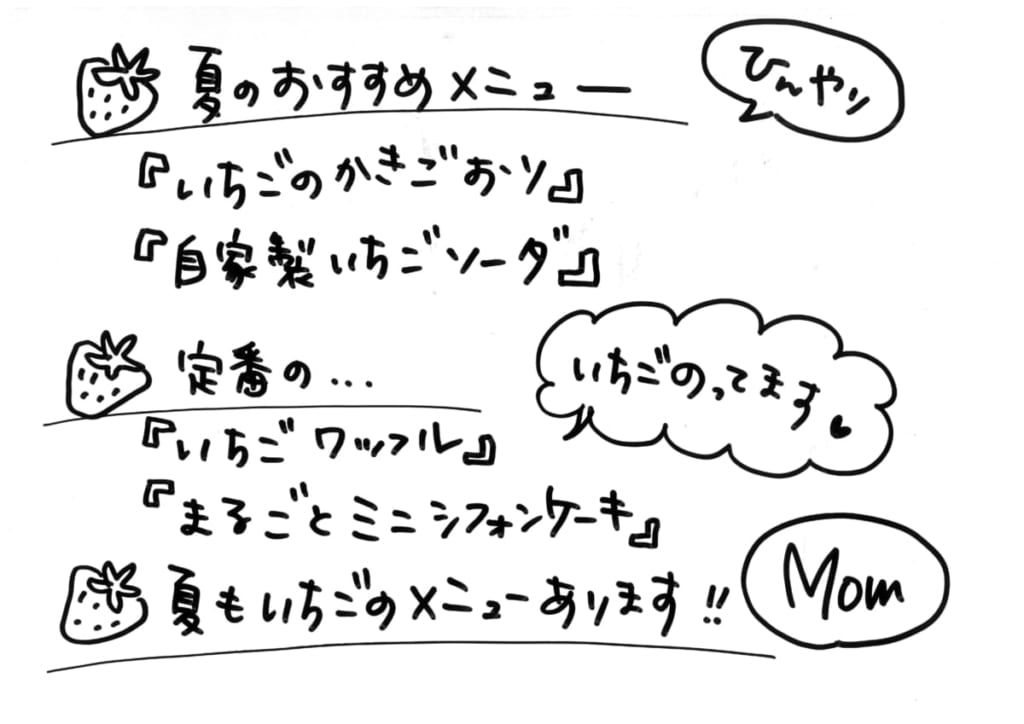 夏のおすすめメニュー
ひんやり
『いちごのかきごおり』
『自家製いちごソーダ』
定番の...
いちごのってます
『いちごワッフル』
『まるごとミニシフォンケーキ』
夏もいちごのメニューあります!!
Mom